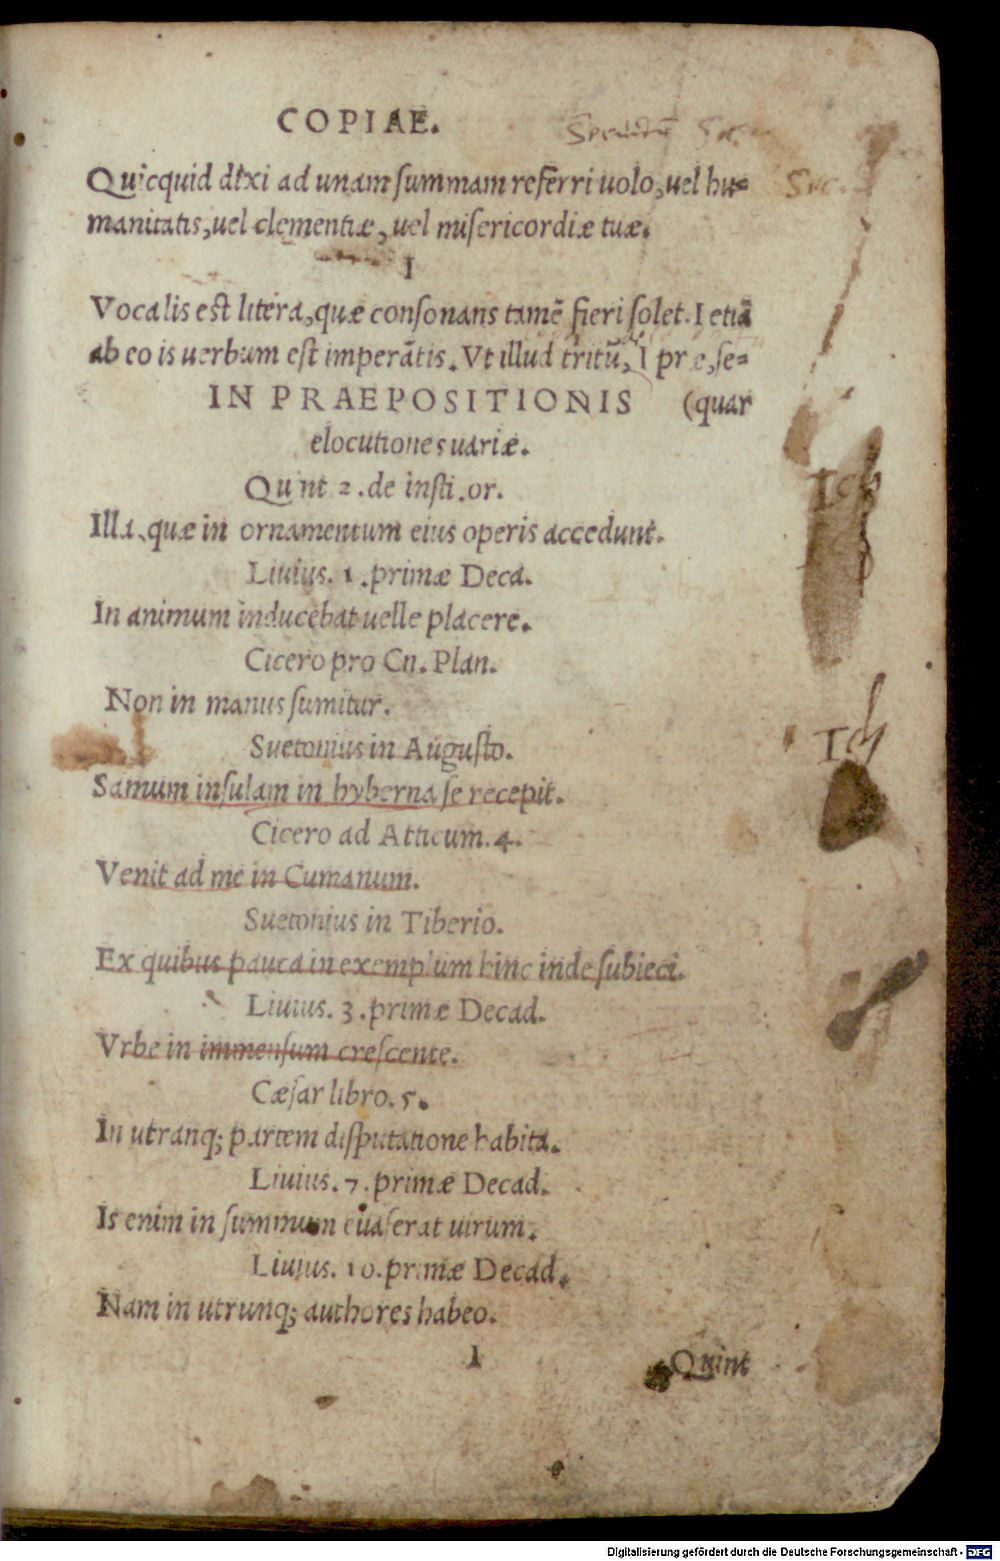 COPIAE.
Quicquid dixi ad unam ſummam referri uolo, uel hu=
manitatis, uel clementiæ, uel miſericordiæ tuæ.
I
Vocalis eſt litera, quæ conſonans tamē fieri ſolet. I etiā
ab eo is uerbum eſt imperātis. Vt illud tritū, I præ, ſe=
IN PRAEPOSITIONIS (quar
elocutiones uariæ.
Quint 2. de inſti. or.
Illa, quæ in ornamentum eius operis accedunt.
Liuius. 1. primæ Deca.
In animum inducebat uelle placere.
Cicero pro Cn. Plan.
Non in manus ſumitur.
Suetonius in Auguſto.
Samum inſulam in hyberna ſe recepit.
Cicero ad Atticum. 4.
Venit ad me in Cumanum.
Suetonius in Tiberio.
Ex quibus pauca in exemplum hinc inde ſubieci.
Liuius. 3. primæ Decad.
Vrbe in immenſum creſcente.
Cæſar libro. 5.
In utranq; partem diſputatione habita.
Liuius. 7. primæ Decad.
Is enim in ſummum euaſerat uirum.
Liuius. 10. primæ Decad.
Nam in utrunq; authores habeo.
I Quint
Ich
Ich
Digitalisierung gefördert durch die Deutsche Forschungsgemeinschaft - DFG